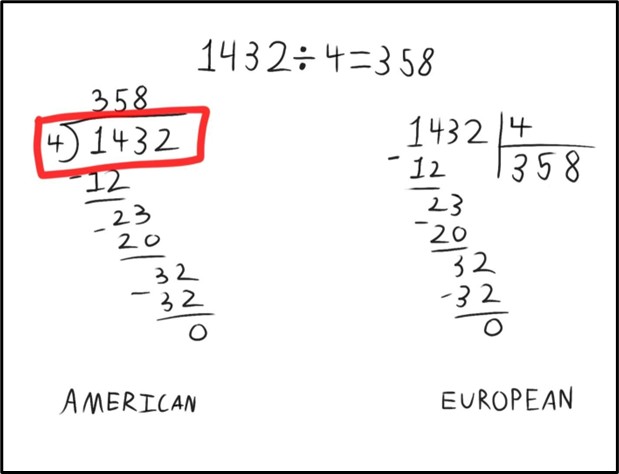 1432÷4=358
358
4)1432
-12
23
-20
32
-32
0
AMERICAN
1432|4
-12 358
23
-20
32
-32
0
EUROPEAN